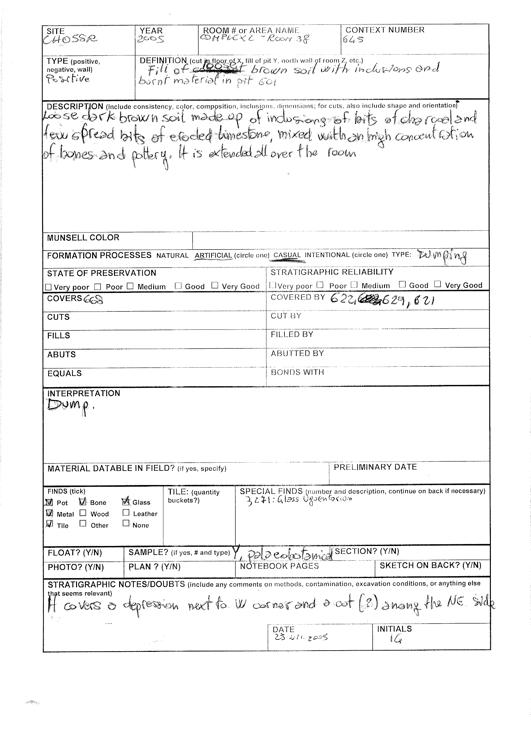 SITE YEAR ROOM # or AREA NAME CONTEXT NUMBER
CHOSSR 2005 COMPLEX L - ROOM 38 645
TYPE (positive, negative, wall) DEFINITION (cut in floor of X, fill of pit Y, north wall of room Z, etc.)
Positive Fill of brown soil with inclusions and
burnt material in pit 601
DESCRIPTION (Include consistency, color, compostion, inclusions, dimensions; for cuts, also include shape and orientation)
Loose dark brown soil made up of inclusions of bits of charcoal and
few spread bits of eroded limestone, mixed with an high concentration
of bones and pottery. It is extended all over the room
MUNSELL COLOR
FORMATION PROCESSES NATURAL ARTIFICIAL (circle one) CASUAL INTENTIONAL (circle one) TYPE: Dumping
STATE OF PRESERVATION STRATIGRAPHIC RELIABILITY
☐ Very poor ☐ Poor ☐ Medium ☐ Good ☐ Very Good ☐ Very poor ☐ Poor ☐ Medium ☐ Good ☐ Very Good
COVERS 668 COVERED BY 622, 629, 621
CUTS CUT BY
FILLS FILLED BY
ABUTS ABUTTED BY
EQUALS BONDS WITH
INTERPRETATION
Dump.
MATERIAL DATABLE IN FIELD? (if yes, specify) PRELIMINARY DATE
FINDS (tick) TILE: (quantity buckets?) SPECIAL FINDS (number and description, continue on back if necessary)
☑ Pot ☑ Bone ☑ Glass 3271: Glass Unguentarium
☑ Metal ☐ Wood ☐ Leather
☑ Tile ☐ Other ☐ None
FLOAT? (Y/N) SAMPLE? (if yes, # and type) Y, paleobotanical SECTION? (Y/N)
PHOTO? (Y/N) PLAN ? (Y/N) NOTEBOOK PAGES SKETCH ON BACK? (Y/N)
STRATIGRAPHIC NOTES/DOUBTS (include any comments on methods, contamination, excavation conditions, or anything else
that seems relevant)
It covers a depression next to W corner and a cut (?) among the NE side
DATE INITIALS
23-VII-2005 IG